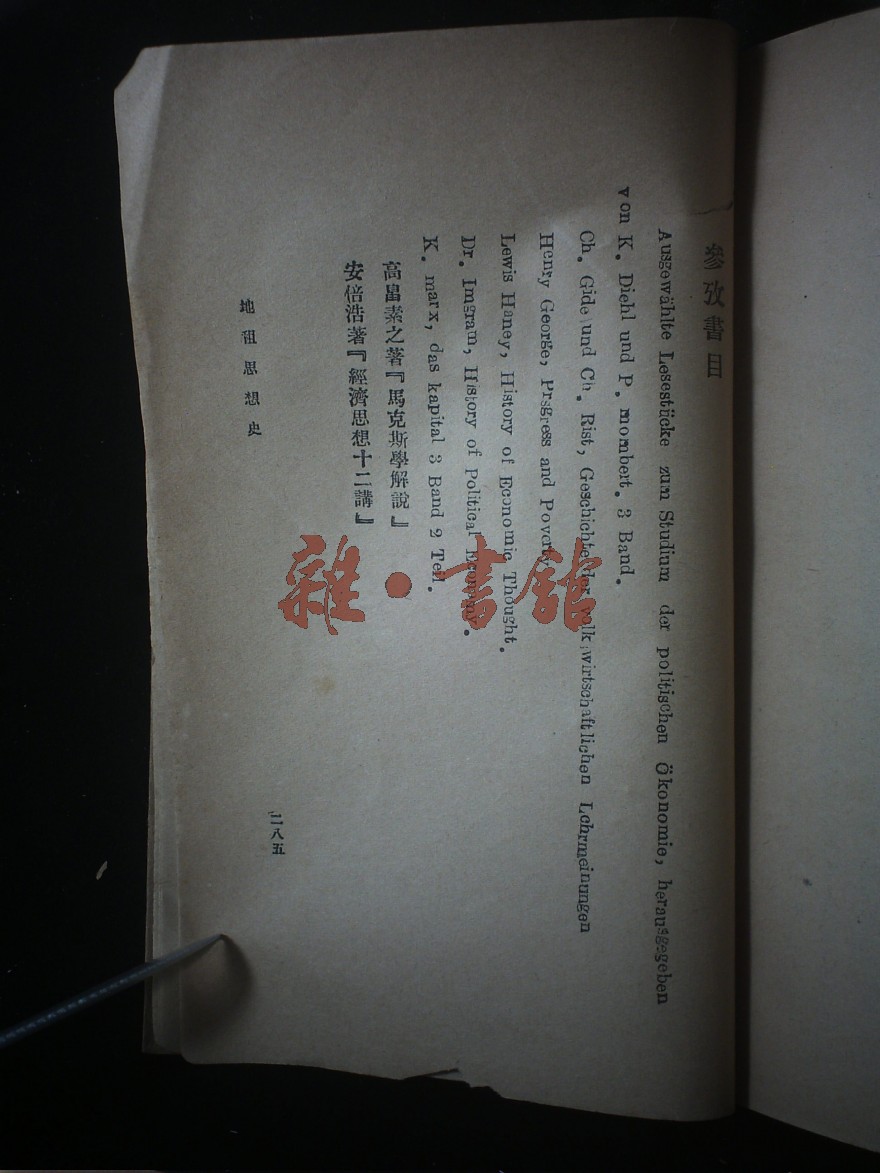 參攷書目
Ausgewählte Lesestücke zum Studium der politischen Ökonomie, herausgegeben
von K. Diehl und P. mombert. 3 Band.
Ch. Gide und Ch. Rist, Geschichte der volkswirtschaftlichen Lehrmeinungen
Henry George, Prsgress and Poverty
Lewis Haney, History of Economic Thought.
Dr. Imgram, History of Political Economy.
K. marx, das kapital 3 Band 2 Teil.
高畠素之著『馬克斯學解說』
安倍浩著『經濟思想十二講』
地租思想史
二八五
雜·書館